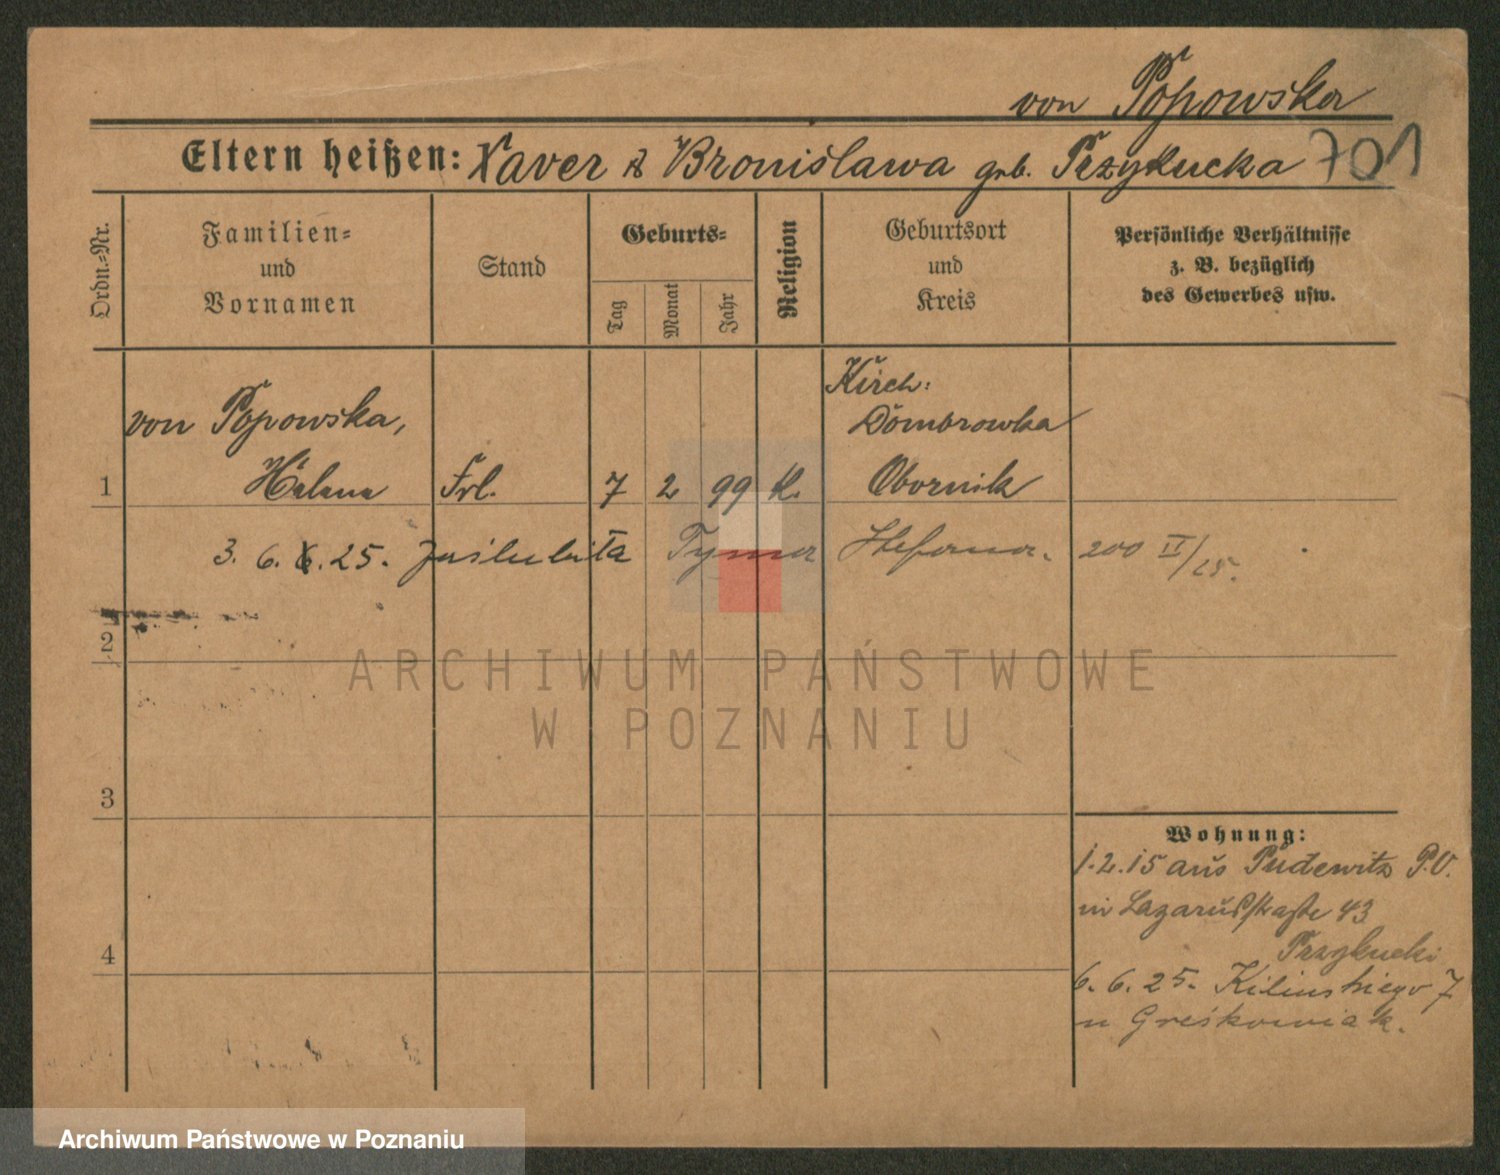 von Popowska
Eltern heißen: Xaver & Bronislawa geb. Przykucka 701
Ordn.-Nr.
Familien-
und
Vornamen
Stand
Geburts-
Tag
Monat
Jahr
Religion
Geburtsort
und
Kreis
Persönliche Verhältnisse
z. B. bezüglich
des Gewerbes usw.
von Popowska,
Helena
1
Frl.
7 2 99 K.
Kirch:
Dombrowka
Obornik
3. 6. 25. zaślubiła Tyma Stefana. 200 II/25.
2
3
4
Wohnung:
1.2.15 aus Pudewitz P.V.
in Lazarusstraße 43
Przykucki
6. 6. 25. Kilinskiego 7
u Greskowiak.
ARCHIWUM PAŃSTWOWE
W POZNANIU
Archiwum Państwowe w Poznaniu